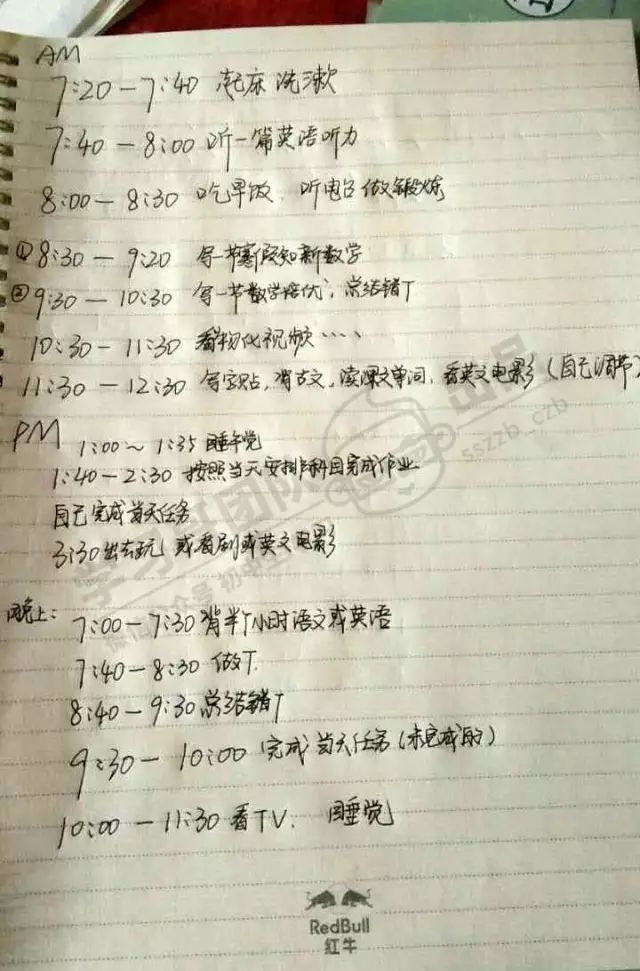 AM
7:20－7:40 起床洗漱
7:40－8:00 听一篇英语听力
8:00－8:30 吃早饭、听电台做锻炼
① 8:30－9:20 每一节寒假知新数学
② 9:30－10:30 每一节数学培优，总结错T
10:30－11:30 看物化视频……
11:30－12:30 背古文，读课文单词，看英文电影（自己调节）
PM 1:00～1:35 睡午觉
1:40－2:30 按照当天安排科目完成作业
自己完成当天任务
3:30出去玩 或看剧或英文电影
晚上：7:00－7:30 背半个小时语文或英语
7:40－8:30 做T.
8:40－9:30 总结错T
9:30－10:00 完成当天任务（未完成的）
10:00－11:30 看TV. 睡觉
RedBull
红牛
sszzb_czb